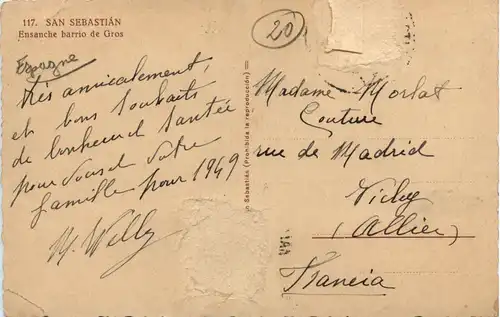 117. SAN SEBASTIÁN
Ensanche barrio de Gros
Espagne
20
Très amicalement,
et bons souhaits
de bonheur Santée
pour vous et votre
famille pour 1949
M. Willy
n Sebastián (Prohibida la reproducción)
Madame Morlat
Couture
rue de Madrid
Vichy
(Allier)
Francia